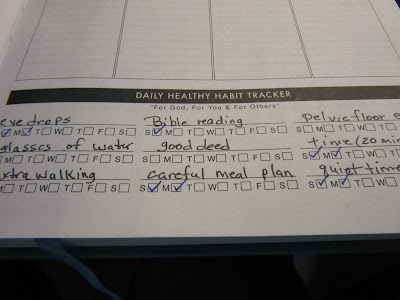 DAILY HEALTHY HABIT TRACKER
"For God, For You & For Others"
eye drops Bible reading Pelvic floor e
M T W T F S S M T W T F S S M T W T
glasses of water good deed time (20 min
M T W T F S S M T W T F S S M T W T
xtra walking careful meal plan quiet time
M T W T F S S M T W T F S S M T W T